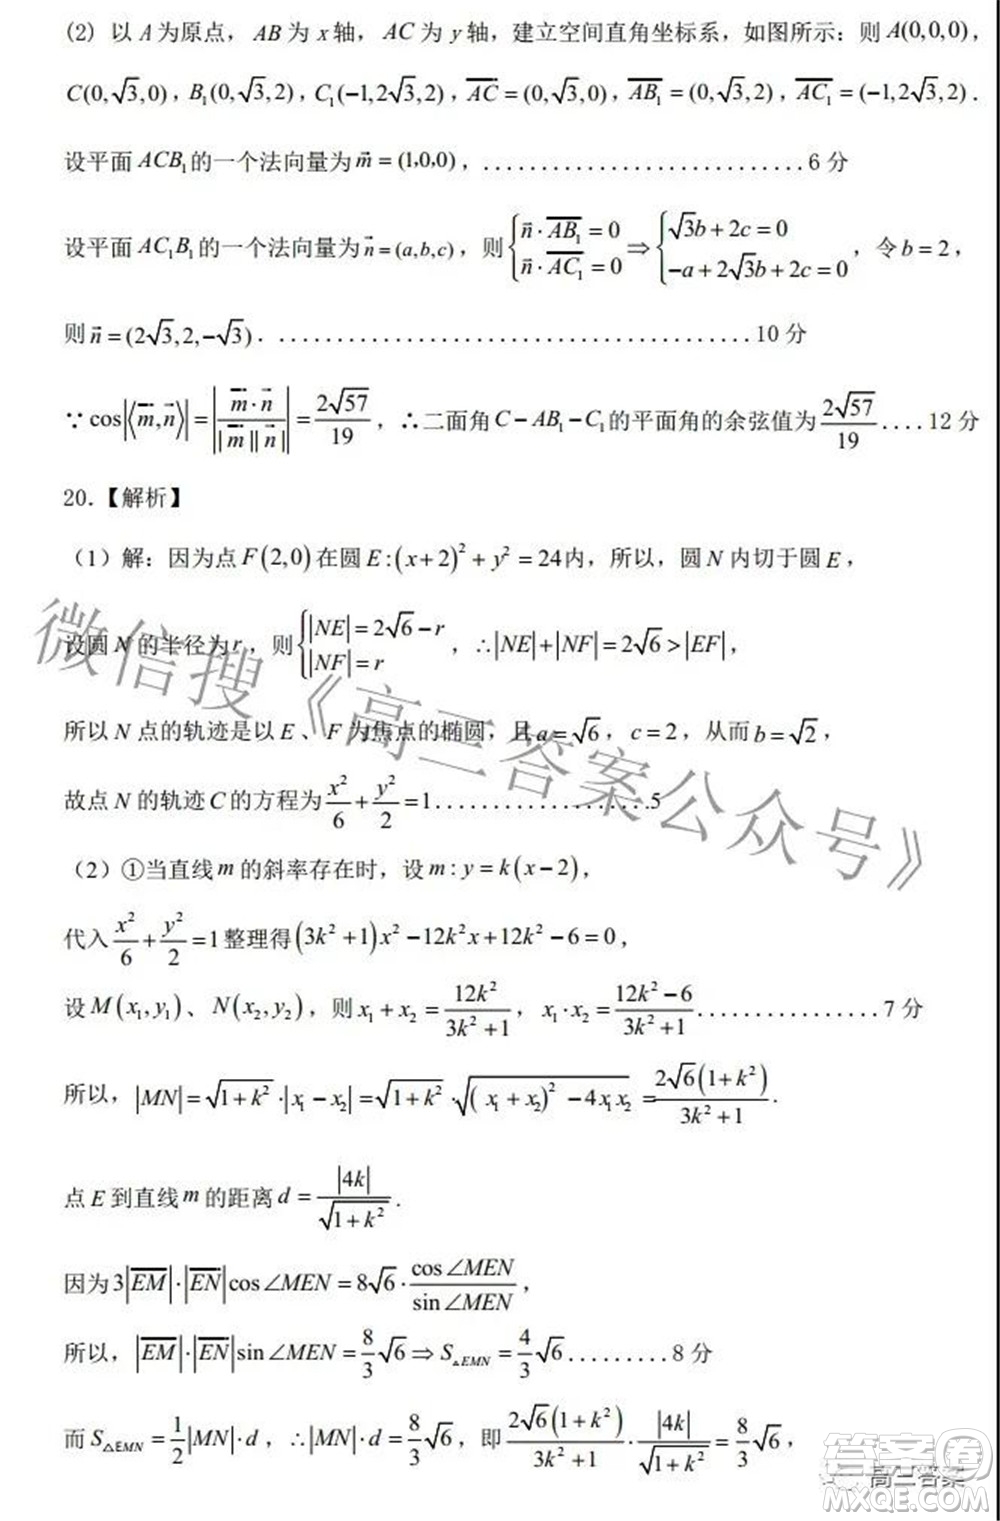 (2) 以 A 为原点，AB 为 x 轴，AC 为 y 轴，建立空间直角坐标系，如图所示：则 A(0,0,0)，
C(0,√3,0)，B₁(0,√3,2)，C₁(−1,2√3,2)，AC=(0,√3,0)，AB₁=(0,√3,2)，AC₁=(−1,2√3,2)．
设平面 ACB₁ 的一个法向量为 m⃗=(1,0,0)，.............................6 分
设平面 AC₁B₁ 的一个法向量为 n⃗=(a,b,c)，则{n⃗·AB₁=0, n⃗·AC₁=0 ⇒ {√3b+2c=0, −a+2√3b+2c=0，令 b=2，
则 n⃗=(2√3,2,−√3)．...........................................10 分
∵ cos|⟨m,n⟩|=|m·n/|m||n||=2√57/19，∴二面角 C−AB₁−C₁ 的平面角的余弦值为 2√57/19....12 分
20.【解析】
（1）解：因为点 F(2,0) 在圆 E:(x+2)²+y²=24 内，所以，圆 N 内切于圆 E，
设圆 N 的半径为 r，则{|NE|=2√6−r, |NF|=r，∴|NE|+|NF|=2√6>|EF|，
所以 N 点的轨迹是以 E、F 为焦点的椭圆，且 a=√6，c=2，从而 b=√2，
故点 N 的轨迹 C 的方程为 x²/6+y²/2=1....................5
（2）①当直线 m 的斜率存在时，设 m:y=k(x−2)，
代入 x²/6+y²/2=1 整理得 (3k²+1)x²−12k²x+12k²−6=0，
设 M(x₁,y₁)、N(x₂,y₂)，则 x₁+x₂=12k²/(3k²+1)，x₁·x₂=(12k²−6)/(3k²+1)................7 分
所以，|MN|=√(1+k²)·|x₁−x₂|=√(1+k²)·√((x₁+x₂)²−4x₁x₂)=2√6(1+k²)/(3k²+1).
点 E 到直线 m 的距离 d=|4k|/√(1+k²).
因为 3|EM|·|EN|cos∠MEN=8√6·cos∠MEN/sin∠MEN，
所以，|EM|·|EN|sin∠MEN=8/3√6⇒S△EMN=4/3√6.........8 分
而 S△EMN=1/2|MN|·d，∴|MN|·d=8/3√6，即 2√6(1+k²)/(3k²+1)·|4k|/√(1+k²)=8/3√6，
微信搜《高三答案公众号》
高三答案
答案圈
MXQE.COM